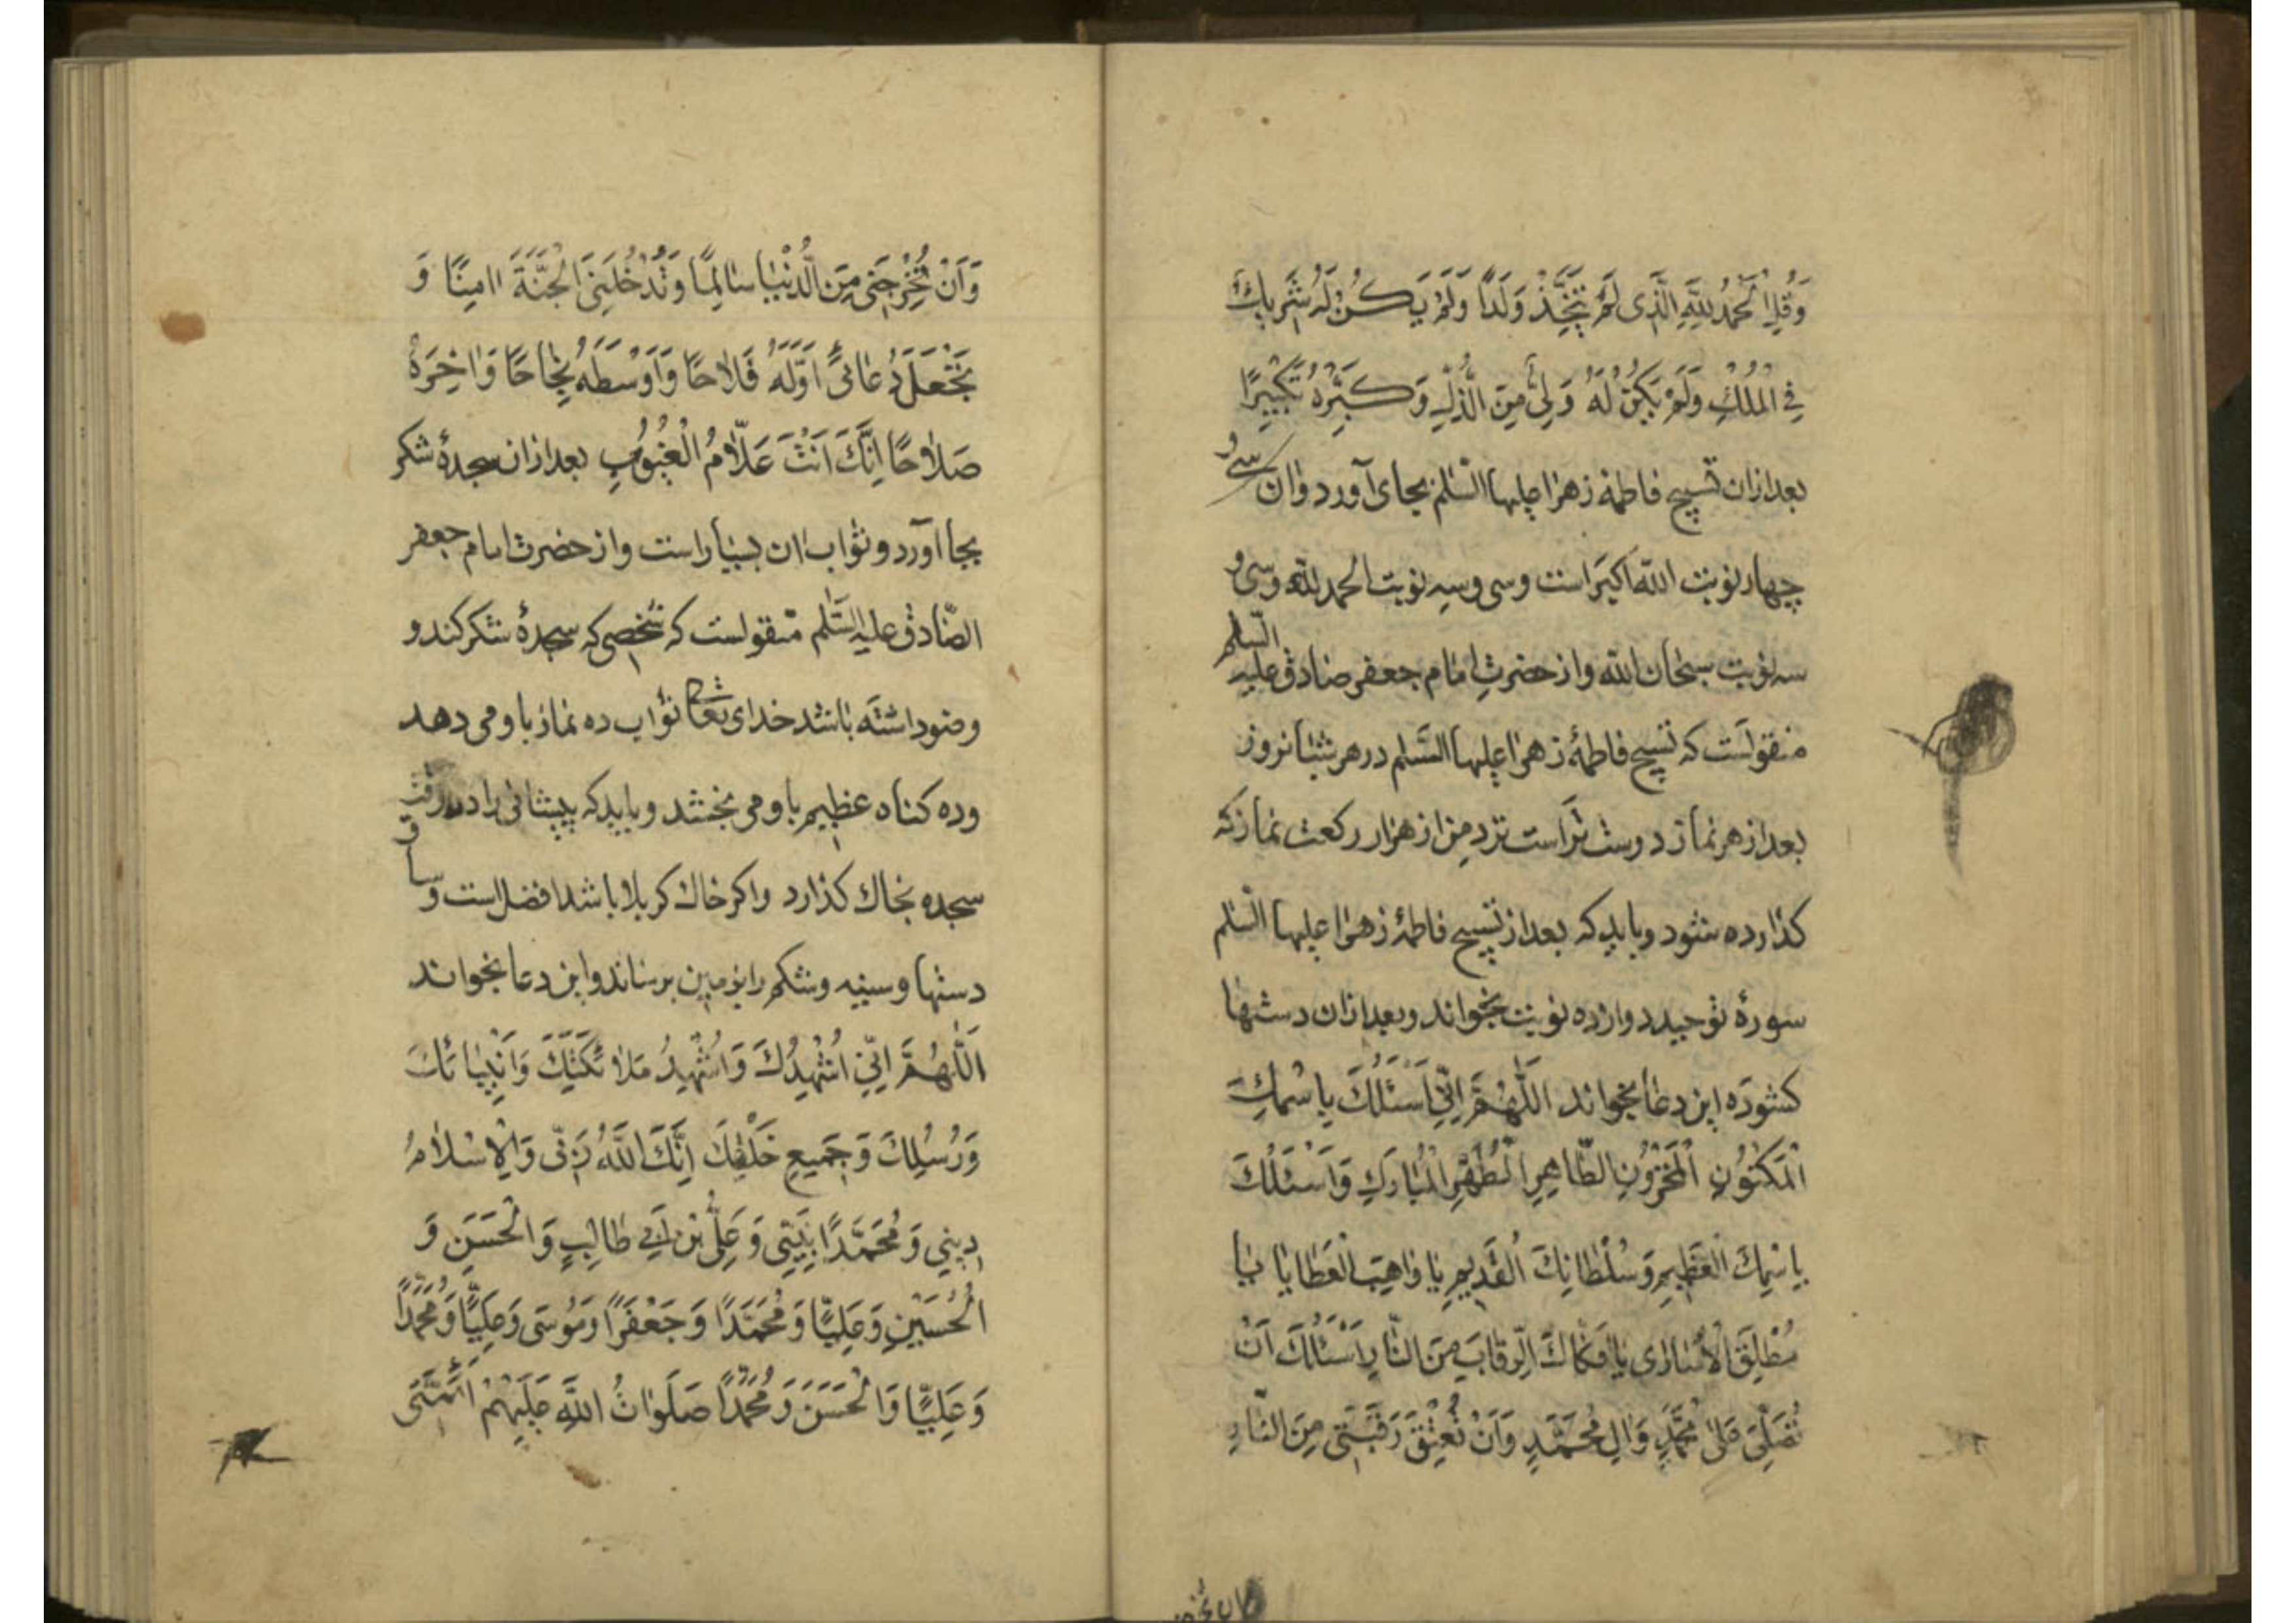 وَقُلِ الْحَمْدُ لِلّٰهِ الَّذِی لَمْ یَتَّخِذْ وَلَدًا وَلَمْ یَكُنْ لَهُ شَرِیكٌ
فِی الْمُلْكِ وَلَمْ یَكُنْ لَهُ وَلِیٌّ مِنَ الذُّلِّ وَكَبِّرْهُ تَكْبِیرًا
بعد ازان تسبیح فاطمهٔ زهرا علیها السّلم بجای آورد و ان سی و
چهار نوبت الله اکبر است و سی و سه نوبت الحمد لله و سی و
سه نوبت سبحان الله و از حضرتِ امام جعفر صادق علیه السّلم
منقولست که تسبیح فاطمهٔ زهرا علیها السّلم در هر شبانروز
بعد از هر نماز دوست تر است نزد من از هزار رکعت نماز که
کذارده شود و باید که بعد از تسبیح فاطمهٔ زهرا علیها السّلم
سورهٔ توحید دوازده نوبت بخواند و بعد ازان دستها
کشوده این دعا بخواند اَللّٰهُمَّ اِنِّی اَسْئَلُكَ بِاسْمِكَ
الْمَكْنُونِ الْمَخْزُونِ الطَّاهِرِ الْطُهْرِ الْمُبَارَكِ وَاَسْئَلُكَ
بِاسْمِكَ الْعَظِیمِ وَسُلْطَانِكَ الْقَدِیمِ یَا وَاهِبَ الْعَطَایَا یَا
مُطْلِقَ الْاُسَارٰی یَا فَكَّاكَ الرِّقَابِ مِنَ النَّارِ اَسْئَلُكَ اَنْ
تُصَلِّیَ عَلٰی مُحَمَّدٍ وَاٰلِ مُحَمَّدٍ وَاَنْ تُعْتِقَ رَقَبَتِی مِنَ النَّارِ
وَاَنْ تُخْرِجَنِی مِنَ الدُّنْیَا سَالِمًا وَتُدْخِلَنِیَ الْجَنَّةَ اٰمِنًا وَ
تَجْعَلَ دُعَائِی اَوَّلَهُ فَلَاحًا وَاَوْسَطَهُ نَجَاحًا وَاٰخِرَهُ
صَلَاحًا اِنَّكَ اَنْتَ عَلَّامُ الْغُیُوبِ بعد ازان سجدهٔ شکر
بجا آورد و ثواب ان بسیار است و از حضرت امام جعفر
الصّادق علیه السّلم منقولست که شخصی که سجدهٔ شکر کند و
وضو داشته باشد خدای تعا ثواب ده نماز باو می دهد
و ده کناه عظیم باو می بخشد و باید که پیشانی را در وقت
سجده بخاك کذارد و اکر خاك کربلا باشد افضل است و ساق
دستها و سینه و شکم را بزمین برساند و این دعا بخواند
اَللّٰهُمَّ اِنِّی اُشْهِدُكَ وَاُشْهِدُ مَلَائِكَتِكَ وَاَنْبِیَائَكَ
وَرُسُلِكَ وَجَمِیعِ خَلْقِكَ اِنَّكَ اَللّٰهُ رَبِّی وَالْاِسْلَامُ
دِینِی وَمُحَمَّدًا نَبِیِّی وَعَلِیُّ بْنُ اَبِی طَالِبٍ وَالْحَسَنَ وَ
الْحُسَیْنِ وَعَلِیًّا وَمُحَمَّدًا وَجَعْفَرًا وَمُوسَی وَعَلِیًّا وَمُحَمَّدًا
وَعَلِیًّا وَالْحَسَنَ وَمُحَمَّدًا صَلَوَاتُ اللّٰهِ عَلَیْهِمْ اَئِمَّتِی